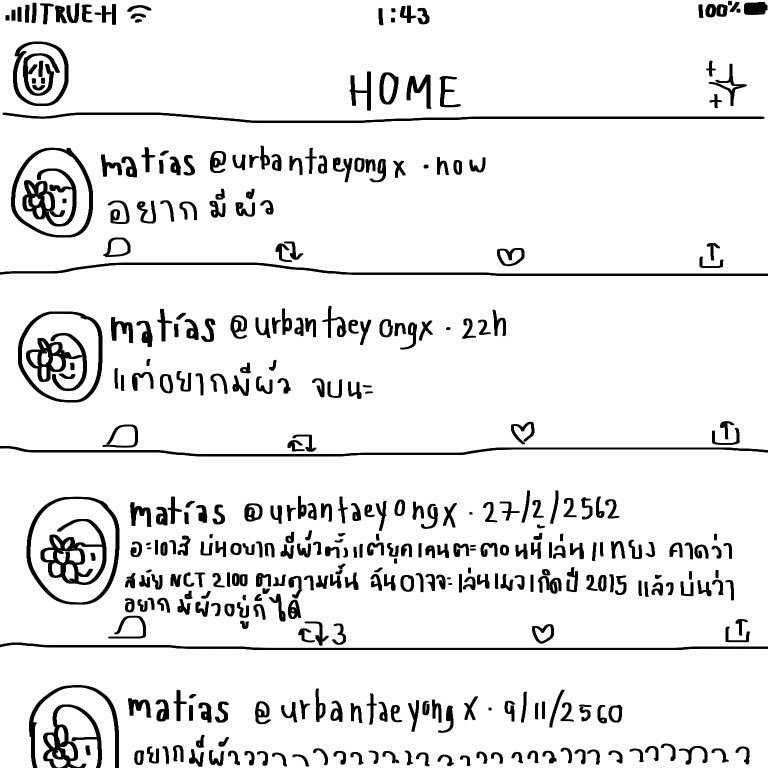 TRUE-H 1:43 100%
HOME
matías @urbantaeyongx · now
อยากมีผัว
matías @urbantaeyongx · 22h
แต่อยากมีผัว จบนะ
matías @urbantaeyongx · 27/2/2562
อะเอาสิ บ่นอยากมีผัวตั้งแต่ยุคเคนตะตอนนี้เล่นแทยง คาดว่า
สมัย NCT 2100 ตูมตามนั้น ฉันอาจจะเล่นเมวเกิดปี 2015 แล้วบ่นว่า
อยากมีผัวอยู่ก็ได้
3
matías @urbantaeyongx · 9/11/2560